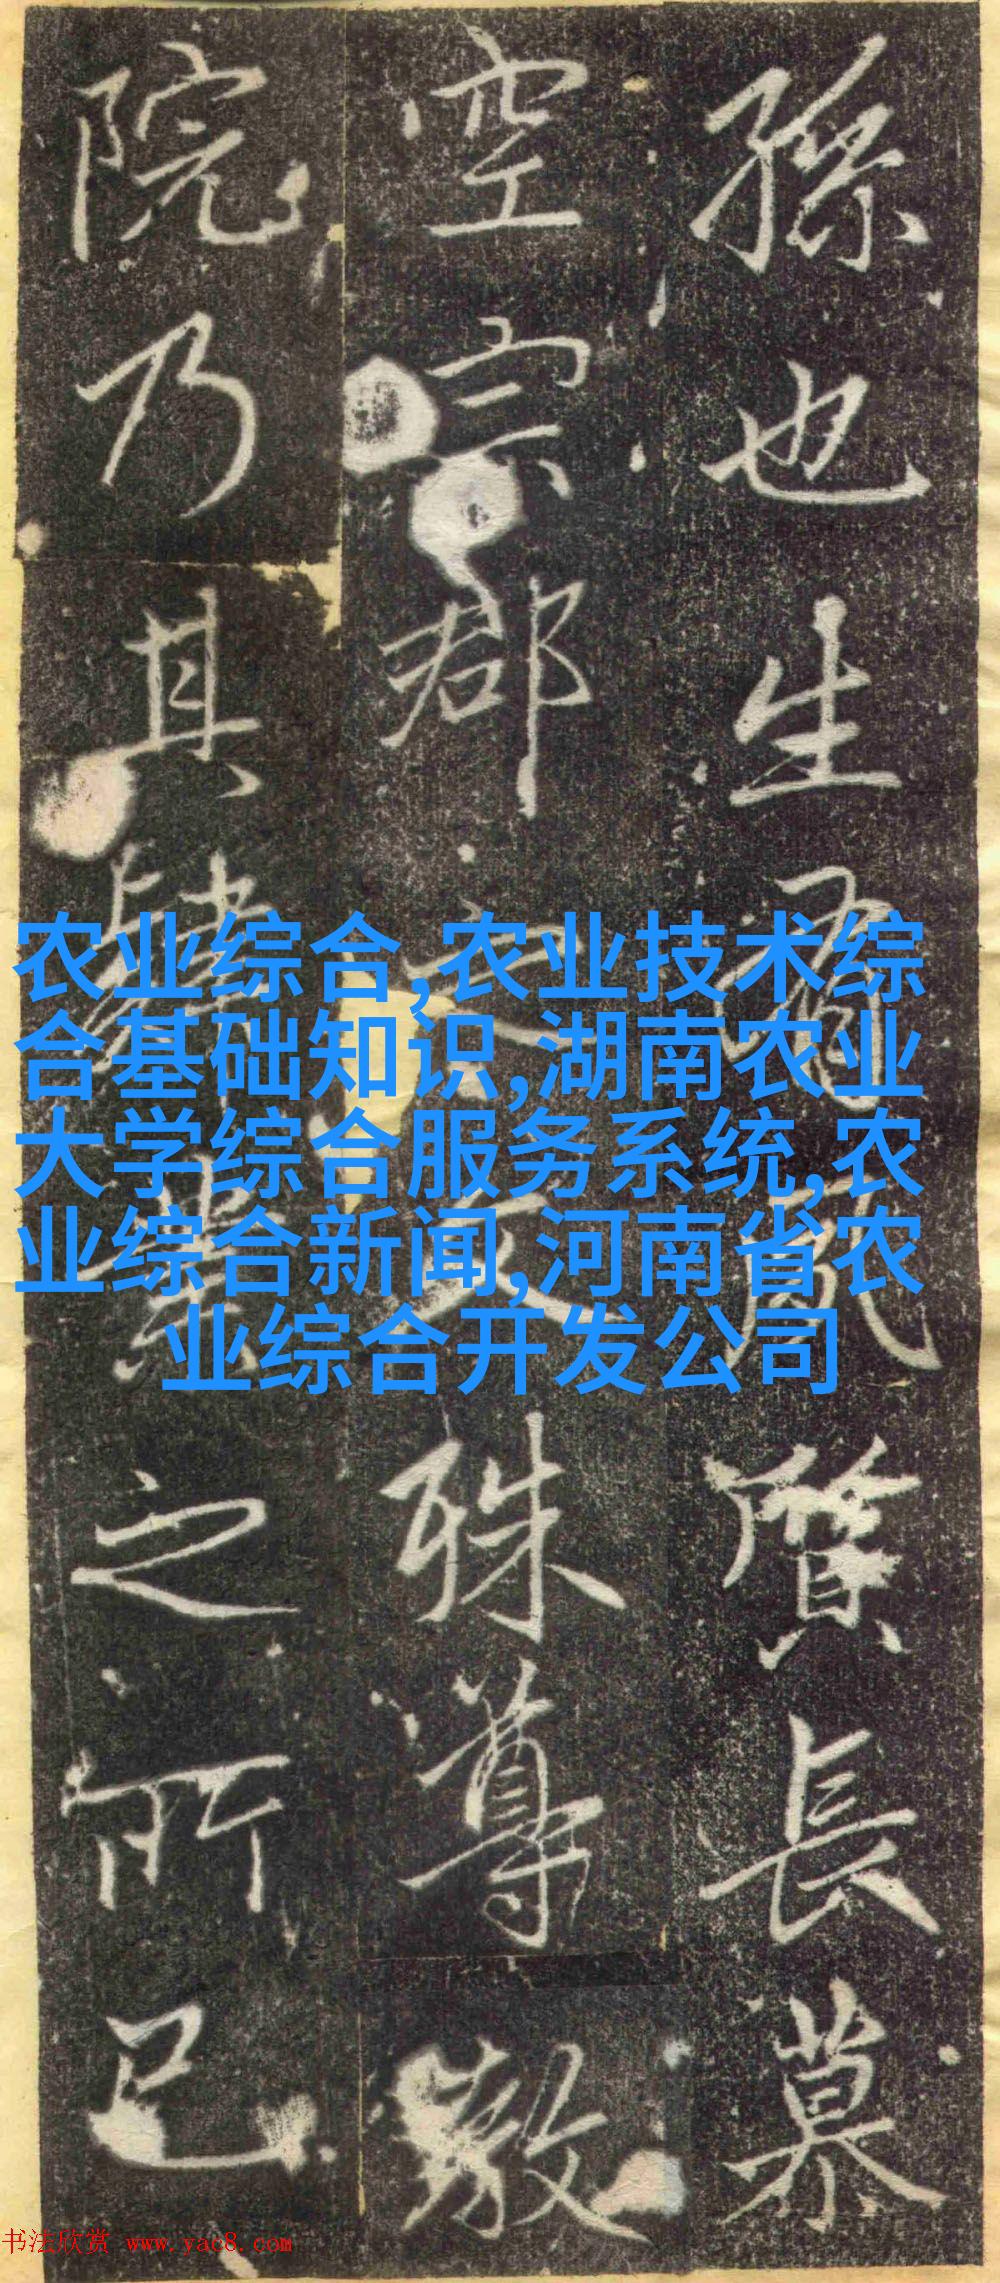 孫也生長慕
空宗郡之文殊尊教
院乃其肄業之所已
农业综合,农业技术综
合基础知识,湖南农业
大学综合服务系统,农
业综合新闻,河南省农
业综合开发公司
书法欣赏 www.yac8.com